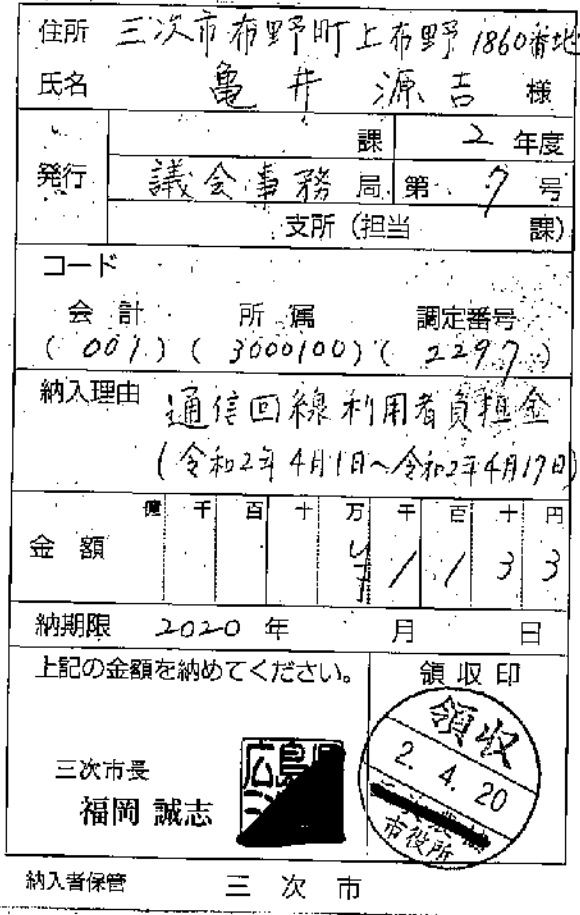 住所 三次市布野町上布野1860番地
氏名 亀井源吉 様
発行
課 2 年度
議会事務 局 第 7 号
支所(担当 課)
コード
会計 所属 調定番号
(001)(3000100)(2297)
納入理由 通信回線利用者負担金
(令和2年4月1日~令和2年4月17日)
億 千 百 十 万 千 百 十 円
金額 ¥ 1 1 3 3
納期限 2020 年 月 日
上記の金額を納めてください。
領収印
三次市長
福岡 誠志
広島県
領収
2. 4. 20
市役所
納入者保管 三次市